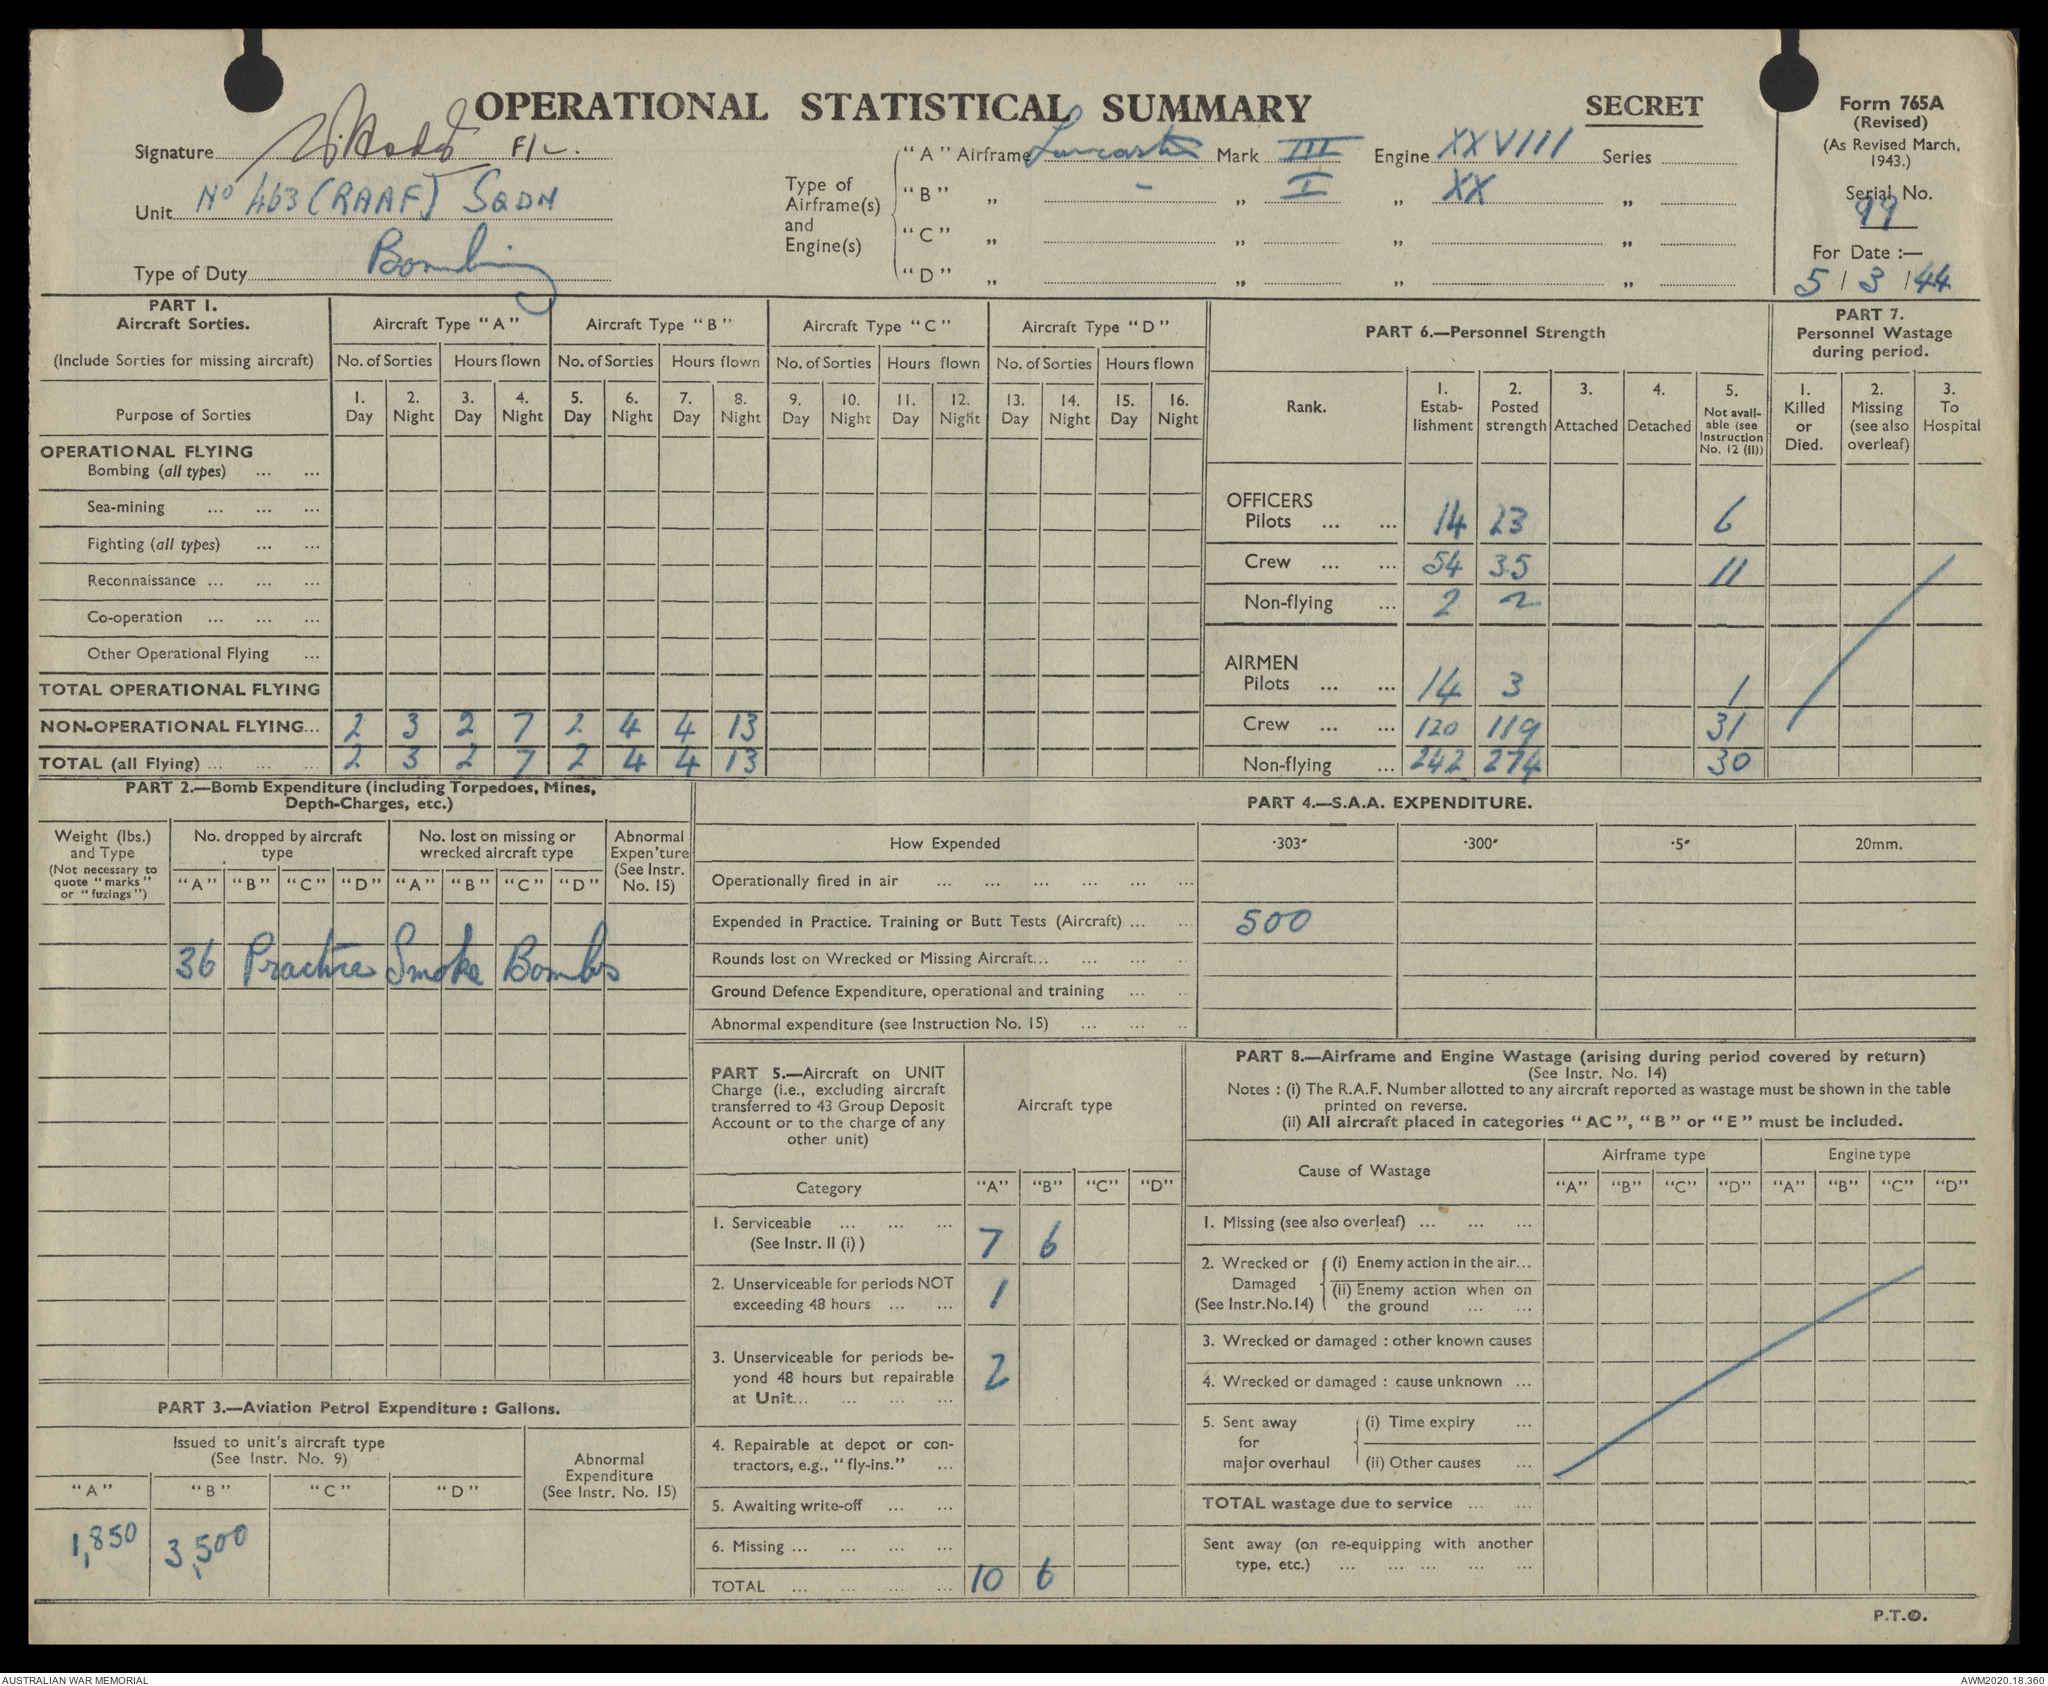 OPERATIONAL STATISTICAL SUMMARY
SECRET
Form 765A
(Revised)
(As Revised March,
1943.)
Serial No.
99
For Date :—
5 / 3 / 44
Signature F/L.
Unit No 463 (RAAF) SQDN
Type of Duty Bombing
Type of
Airframe(s)
and
Engine(s)
"A" Airframe Lancaster Mark III Engine XXVIII Series
"B" „ - „ I „ XX „
"C" „ „ „ „
"D" „ „ „ „
PART 1.
Aircraft Sorties.
(Include Sorties for missing aircraft)
Purpose of Sorties
Aircraft Type "A" Aircraft Type "B" Aircraft Type "C" Aircraft Type "D"
No. of Sorties Hours flown No. of Sorties Hours flown No. of Sorties Hours flown No. of Sorties Hours flown
1. 2. 3. 4. 5. 6. 7. 8. 9. 10. 11. 12. 13. 14. 15. 16.
Day Night Day Night Day Night Day Night Day Night Day Night Day Night Day Night
OPERATIONAL FLYING
Bombing (all types) ... ...
Sea-mining ... ... ...
Fighting (all types) ... ...
Reconnaissance ... ... ...
Co-operation ... ... ...
Other Operational Flying ...
TOTAL OPERATIONAL FLYING
NON-OPERATIONAL FLYING... 2 3 2 7 2 4 4 13
TOTAL (all Flying) ... ... ... 2 3 2 7 2 4 4 13
PART 6.—Personnel Strength
Rank.
1.
Estab-
lishment
2.
Posted
strength
3.
Attached
4.
Detached
5.
Not avail-
able (see
Instruction
No. 12 (II))
OFFICERS
Pilots ... ... 14 23 6
Crew ... ... 54 35 11
Non-flying ... 2 2
AIRMEN
Pilots ... ... 14 3 1
Crew ... ... 120 119 31
Non-flying ... 242 274 30
PART 7.
Personnel Wastage
during period.
1.
Killed
or
Died.
2.
Missing
(see also
overleaf)
3.
To
Hospital
PART 2.—Bomb Expenditure (including Torpedoes, Mines,
Depth-Charges, etc.)
Weight (lbs.)
and Type
(Not necessary to
quote "marks"
or "fuzings")
No. dropped by aircraft
type
No. lost on missing or
wrecked aircraft type
Abnormal
Expen'ture
(See Instr.
No. 15)
"A" "B" "C" "D" "A" "B" "C" "D"
36 Practice Smoke Bombs
PART 3.—Aviation Petrol Expenditure : Gallons.
Issued to unit's aircraft type
(See Instr. No. 9)
Abnormal
Expenditure
(See Instr. No. 15)
"A" "B" "C" "D"
1,850 3,500
PART 4.—S.A.A. EXPENDITURE.
How Expended ·303" ·300" ·5" 20mm.
Operationally fired in air ... ... ... ... ... ...
Expended in Practice. Training or Butt Tests (Aircraft) ... .. 500
Rounds lost on Wrecked or Missing Aircraft... ... ... ..
Ground Defence Expenditure, operational and training ... ..
Abnormal expenditure (see Instruction No. 15) ... ... ..
PART 5.—Aircraft on UNIT
Charge (i.e., excluding aircraft
transferred to 43 Group Deposit
Account or to the charge of any
other unit)
Aircraft type
Category "A" "B" "C" "D"
1. Serviceable ... ... ...
(See Instr. II (i) ) 7 6
2. Unserviceable for periods NOT
exceeding 48 hours ... ... 1
3. Unserviceable for periods be-
yond 48 hours but repairable
at Unit... ... ... ... 2
4. Repairable at depot or con-
tractors, e.g., "fly-ins." ...
5. Awaiting write-off ... ...
6. Missing ... ... ... ...
TOTAL ... ... ... ... 10 6
PART 8.—Airframe and Engine Wastage (arising during period covered by return)
(See Instr. No. 14)
Notes : (i) The R.A.F. Number allotted to any aircraft reported as wastage must be shown in the table
printed on reverse.
(ii) All aircraft placed in categories "AC", "B" or "E" must be included.
Cause of Wastage
Airframe type Engine type
"A" "B" "C" "D" "A" "B" "C" "D"
1. Missing (see also overleaf) ... ... ...
2. Wrecked or
Damaged
(See Instr.No.14)
(i) Enemy action in the air...
(ii) Enemy action when on
the ground ... ...
3. Wrecked or damaged : other known causes
4. Wrecked or damaged : cause unknown ...
5. Sent away
for
major overhaul
(i) Time expiry ...
(ii) Other causes ...
TOTAL wastage due to service ... ...
Sent away (on re-equipping with another
type, etc.) ... ... ... ... ...
P.T.O.
AUSTRALIAN WAR MEMORIAL
AWM2020.18.360